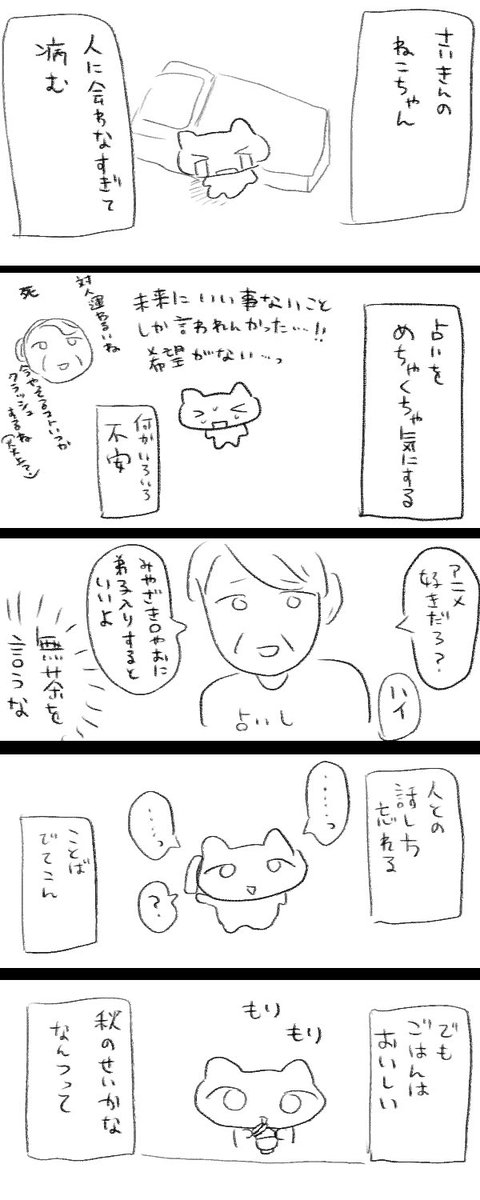 さいきんの
ねこちゃん
人に会わなすぎて
病む
占いを
めちゃくちゃ気にする
未来にいい事ないこと
しか言われんかった…!!
希望がない…っ
何かいろいろ
不安
対人運わるいね
死
クラッシュ
するね
アニメ
好きだろ?
ハイ
みやざきはやおに
弟子入りすると
いいよ
占いし
無茶を
言うな
人との
話し方
忘れる
……っ
……っ
?
ことば
でてこん
でも
ごはんは
おいしい
もり
もり
秋のせいかな
なんつって